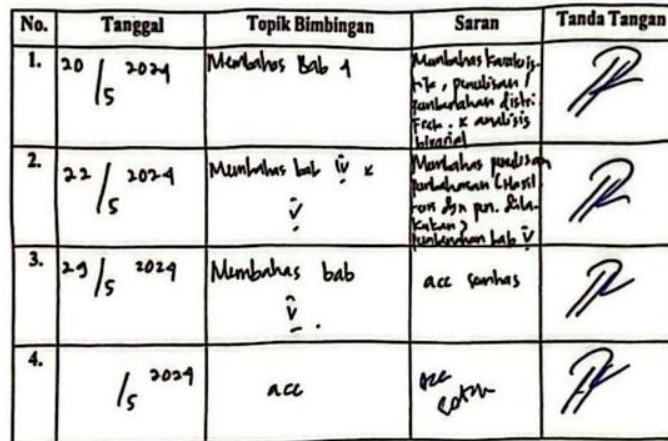 No. Tanggal Topik Bimbingan Saran Tanda Tangan
1. 20 / 5 2024 Membahas Bab 4 Membahas karakteris-
tik, penulisan /
penambahan distri
Frek. &amp; analisis
bivariat
2. 22 / 5 2024 Membahas bab IV &amp; V Membahas
pembahasan (Hasil
dgn pen. dila-
kukan)
bab V
3. 29 / 5 2024 Membahas bab V acc semhas
4. / 5 2024 acc acc